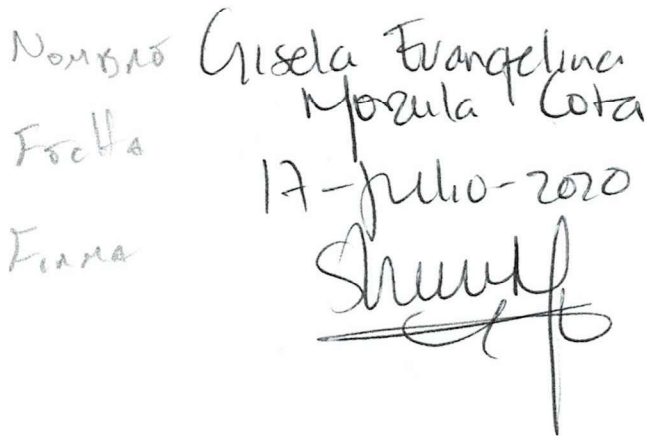 Nombre Gisela Evangelina
Morzula Cota
Fecha
17-Julio-2020
Firma